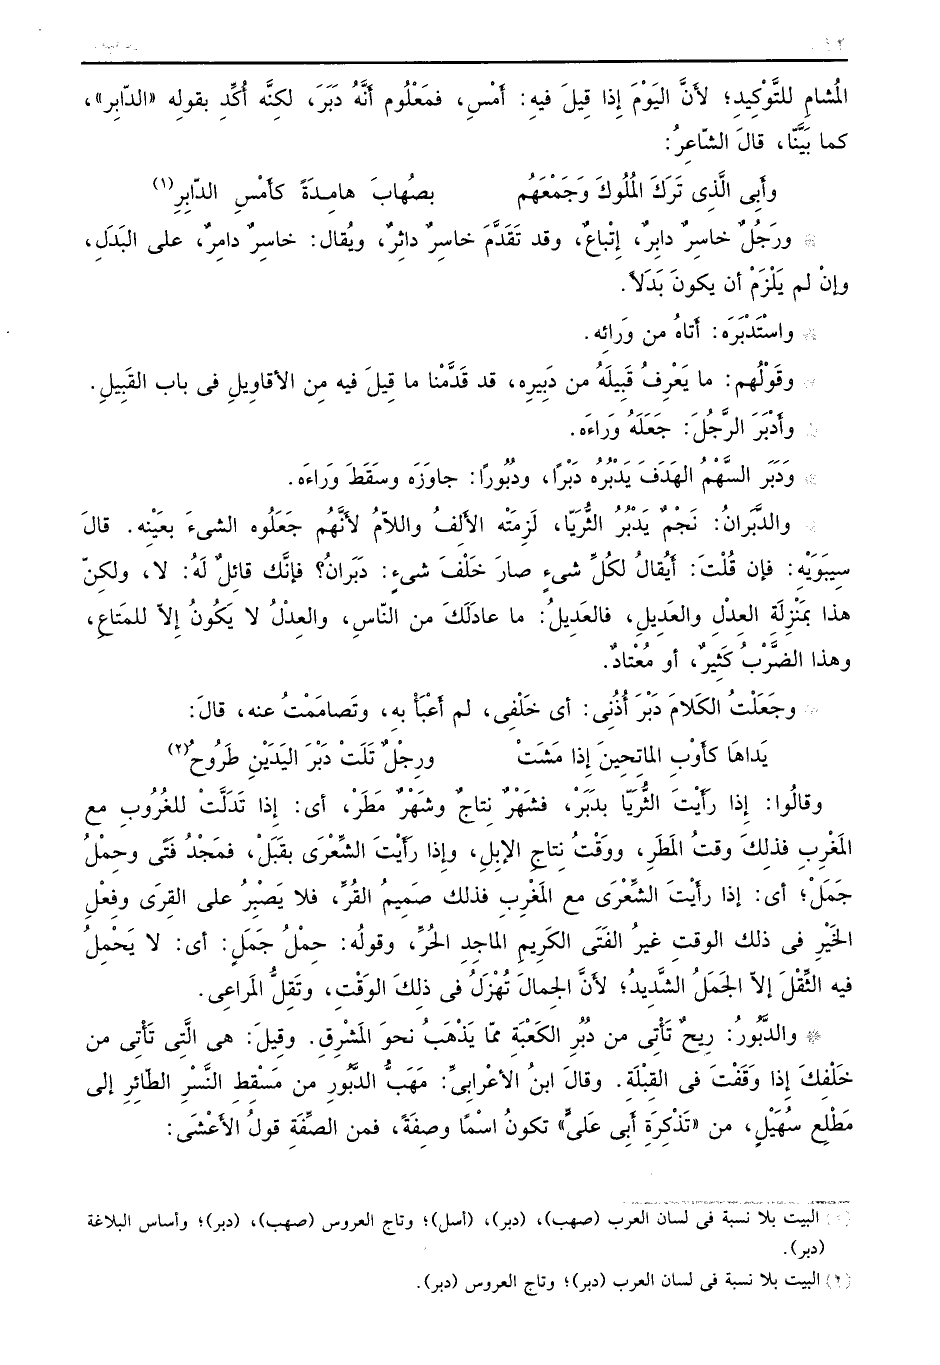 المُشامِ للتَّوْكِيدِ؛ لأنَّ اليَوْمَ إذا قيلَ فيهِ: أمْسِ، فمَعْلُوم أنَّهُ دَبَرَ، لكنَّه أُكِّدِ بقوله «الدَّابِر»،
كما بَيَّنَّا، قالَ الشّاعِرُ:
وأَبِى الَّذِى تَرَكَ المُلُوكَ وَجَمْعَهُم بصُهابَ هامِدَةً كأَمْسِ الدّابِرِ(١)
* ورَجُلٌ خاسِرٌ دابِرٌ، إتْباعٌ، وقد تَقَدَّمَ خاسِرٌ داثِرٌ، ويُقال: خاسِرٌ دامِرٌ، على البَدَلِ،
وإنْ لم يَلْزَمْ أن يكونَ بَدَلاً.
* واسْتَدْبَرَه: أَتاهُ من وَرائه.
* وقَوْلُهم: ما يَعْرِفُ قَبِيلَهُ من دَبِيرِه، قد قَدَّمْنا ما قِيلَ فيه من الأقاوِيلِ فى باب القَبِيلِ.
* وأَدْبَرَ الرَّجُلَ: جَعَلَهُ وَراءَه.
* ودَبَر السَّهْمُ الهَدَفَ يَدْبُرُه دَبْرًا، ودُبُورًا: جاوَزَه وسَقَطَ وَراءَه.
* والدَّبَرانُ: نَجْمٌ يَدْبُرُ الثُّرَيّا، لَزِمَتْه الألفُ واللاّمُ لأنَّهُم جَعَلُوه الشىءَ بعَيْنِه. قالَ
سِيبَوَيْهِ: فإن قُلْتَ: أيُقالُ لكُلِّ شىءٍ صارَ خَلْفَ شىءٍ: دَبَرانُ؟ فإنَّك قائِلٌ لَهُ: لا، ولكنّ
هذا بمَنْزِلَة العِدْلِ والعَدِيلِ، فالعَدِيلُ: ما عادَلَكَ من النّاسِ، والعِدْلُ لا يَكُونُ إلاّ للمَتاعِ،
وهذا الضَّرْبُ كَثِيرٌ، أو مُعْتادٌ.
* وجَعَلْتُ الكَلامَ دَبْرَ أُذُنِى: أى خَلْفِى، لم أَعْبَأْ به، وتَصامَمْتُ عنه، قالَ:
يَداهَا كأَوْبِ الماتِحِينَ إذا مَشَتْ ورِجْلٌ تَلَتْ دَبْرَ اليَدَيْنِ طَرُوحُ(٢)
وقالُوا: إذا رَأَيْتَ الثُّرَيّا بدَبَرْ، فشَهْرٌ نتاجٌ وشَهْرٌ مَطَرْ، أى: إذا تَدَلَّتْ للغُرُوبِ مع
المَغْرِبِ فذلكَ وقتُ المَطَرِ، ووَقْتُ نتاجِ الإبِلِ، وإذا رَأَيْتَ الشِّعْرَى بقَبَلْ، فمَجْدُ فَتًى وحِمْلُ
جَمَلْ؛ أى: إذا رأيْتَ الشِّعْرَى مع المَغْرِبِ فذلك صَمِيمُ القُرِّ، فلا يَصْبِرُ على القِرَى وفعْلِ
الخَيْرِ فى ذلك الوقتِ غيرُ الفَتَى الكَرِيمِ الماجِدِ الحُرِّ، وقولُه: حِمْلُ جَمَلِ: أى: لا يَحْمِلُ
فيه الثِّقْلَ إلاّ الجَمَلُ الشَّدِيدُ؛ لأنَّ الجِمالَ تُهْزَلُ فى ذلِكَ الوَقْتِ، وتَقِلُّ المَراعِى.
* والدَّبُورُ: رِيحٌ تَأْتِى من دُبُرِ الكَعْبَةِ ممّا يَذْهَبُ نحوَ المَشْرِقِ. وقِيلَ: هى الَّتِى تَأْتِى من
خَلْفِكَ إذا وَقَفْتَ فى القِبْلَة. وقالَ ابنُ الأعْرابىِّ: مَهَبُّ الدَّبُورِ من مَسْقِطِ النَّسْرِ الطّائِرِ إلى
مَطْلِعِ سُهَيْلٍ، من «تَذْكِرَةِ أبى عَلىٍّ» تكونُ اسْمًا وصِفَةً، فمن الصِّفَة قولُ الأعْشَى:
(١) البيت بلا نسبة فى لسان العرب (صهب)، (دبر)، (أسل)؛ وتاج العروس (صهب)، (دبر)؛ وأساس البلاغة
(دبر).
(٢) البيت بلا نسبة فى لسان العرب (دبر)؛ وتاج العروس (دبر).